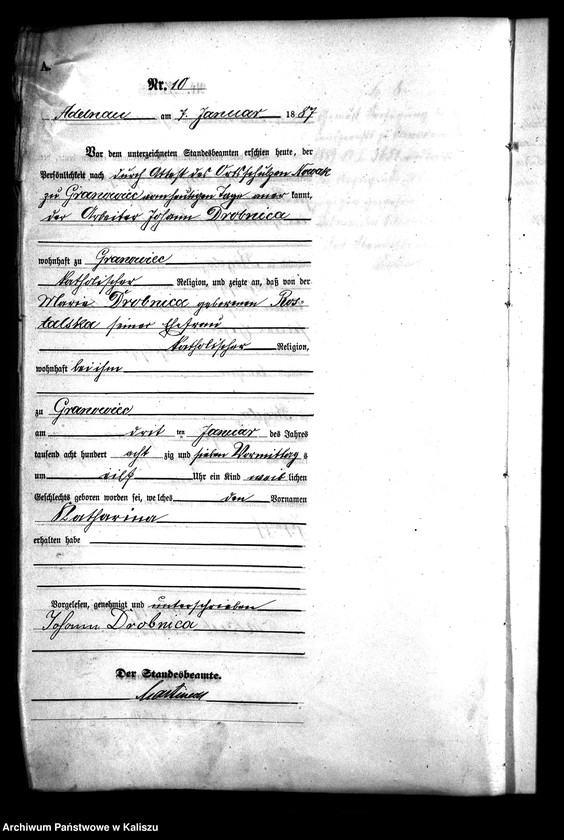 A.
Nr. 10
Adelnau am 7. Januar 1887
Vor dem unterzeichneten Standesbeamten erschien heute, der
Persönlichkeit nach durch Attest des Ortsschulzen Nowak
zu Granowiec vom heutigen Tage aner kannt,
der Arbeiter Johann Drobnica
wohnhaft zu Granowiec
katholischer Religion, und zeigte an, daß von der
Maria Drobnica geborenen Ros-
talska seiner Ehefrau
katholischer Religion,
wohnhaft bei ihm
zu Granowiec
am drit ten Januar des Jahres
tausend acht hundert acht zig und sieben Vormittag s
um eilf Uhr ein Kind weib lichen
Geschlechts geboren worden sei, welches den Vornamen
Katharina
erhalten habe
Vorgelesen, genehmigt und unterschrieben
Johann Drobnica
Der Standesbeamte.
Archiwum Państwowe w Kaliszu